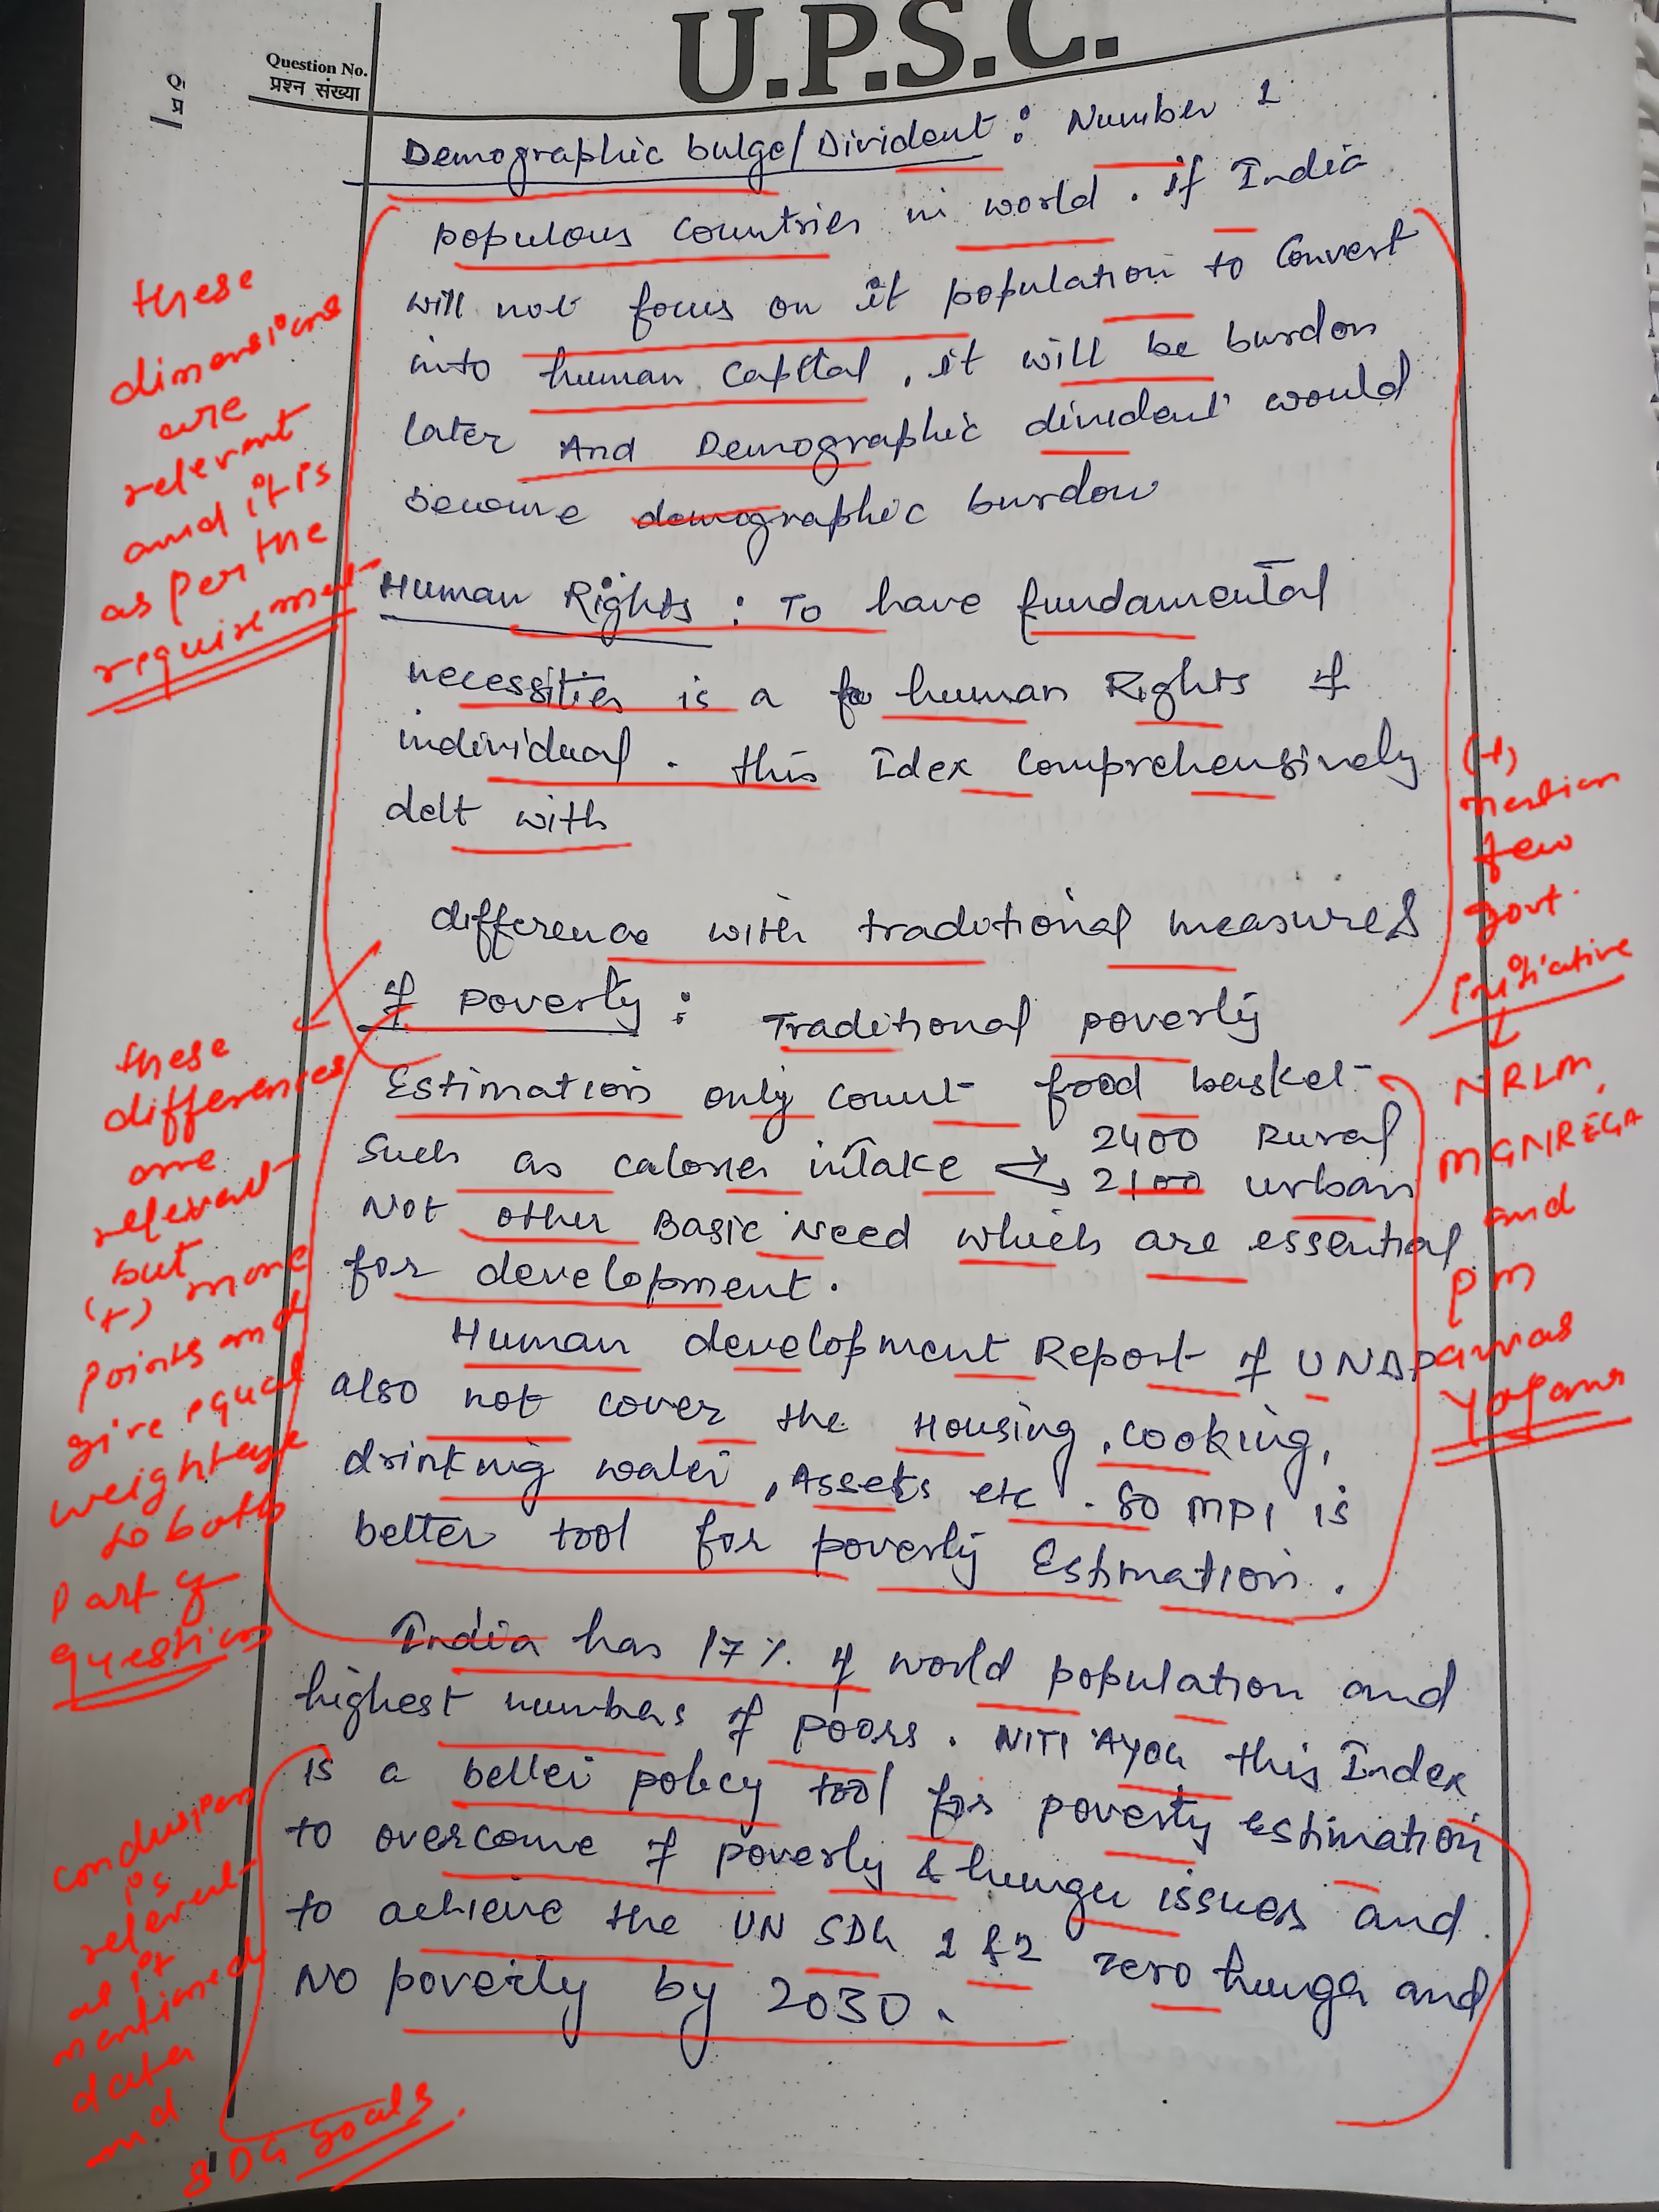 U.P.S.C.
Question No.
प्रश्न संख्या
Demographic bulge/Divident : Number 1
populous countries in world . if India
will not focus on it population to Convert
into human Capital , it will be burdon
later And Demographic divident would
become demographic burdon
Human Rights : To have fundamental
necessities is a human Rights of
individual . this Idex comprehensively
delt with
difference with traditional measures
of poverty : Traditional poverty
Estimation only count food basket
Such as calories intake → 2400 Rural
→ 2100 urban
Not other Basic Need which are essential
for development .
Human development Report of UNDP
also not cover the Housing , cooking ,
drinking water , Assets etc . So MPI is
better tool for poverty Estimation .
India has 17 % of world population and
highest numbers of poors . NITI AYOG this Index
is a better policy tool for poverty estimation
to overcome of poverty & hunger issues and
to achieve the UN SDG 1 & 2 zero hunger and
No poverty by 2030 .
these
dimensions
are
relevant
and it is
as per the
requirement
these
differences
are
relevant
but
(+) more
points and
give equal
weightage
to both
part of
question
conclusion
is
relevant
as it
mentioned
data
and
SDG Goals
(+)
mention
few
govt.
initiative
↓
NRLM,
MGNREGA
and
PM
awas
Yojana